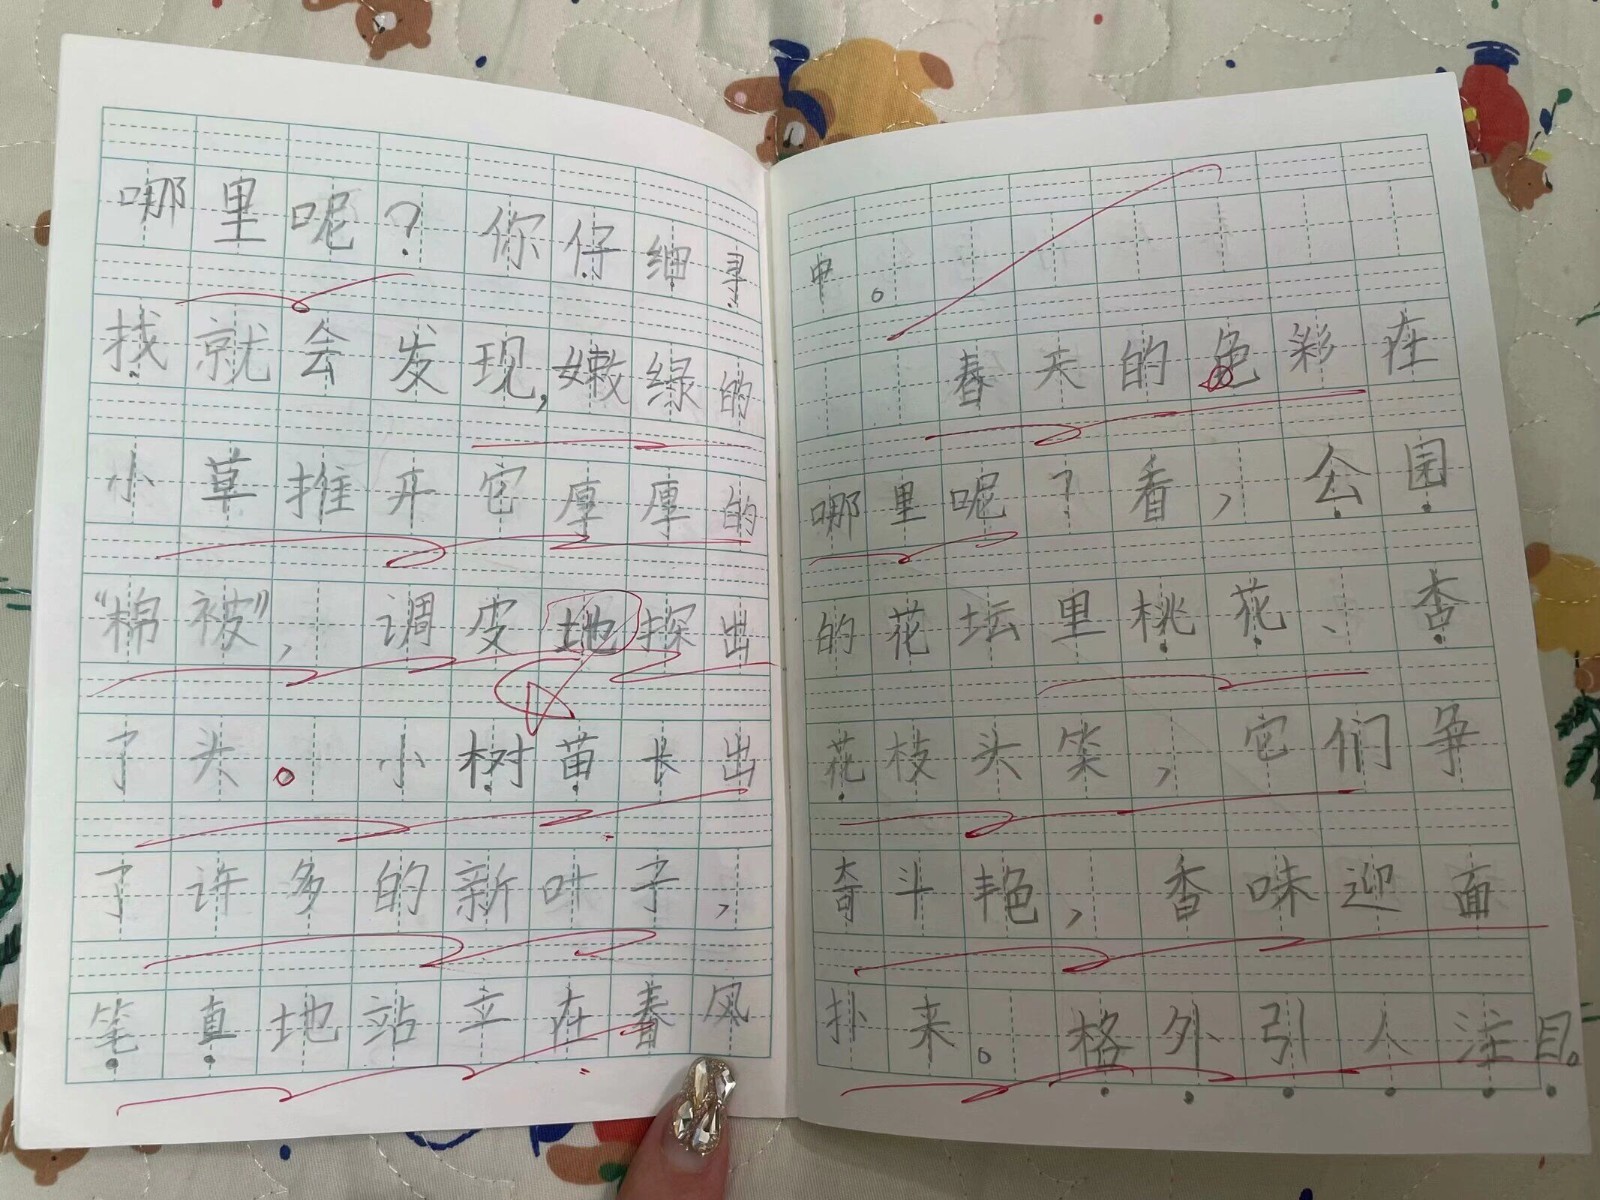 哪里呢?你仔细寻
找就会发现,嫩绿的
小草推开它厚厚的
“棉被”,调皮地探出
了头。小树苗长出
了许多的新叶子,
笔直地站立在春风
中。
春天的色彩在
哪里呢?看,公园
的花坛里桃花、杏
花枝头笑,它们争
奇斗艳,香味迎面
扑来。格外引人注目。